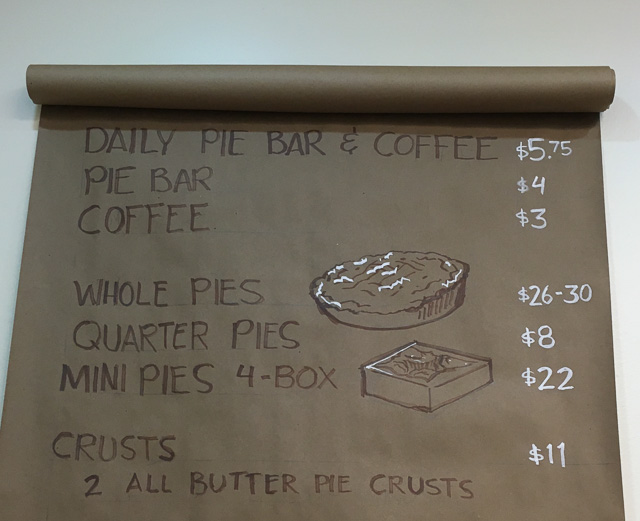 DAILY PIE BAR & COFFEE $5.75
PIE BAR $4
COFFEE $3
WHOLE PIES $26-30
QUARTER PIES $8
MINI PIES 4-BOX $22
CRUSTS $11
2 ALL BUTTER PIE CRUSTS